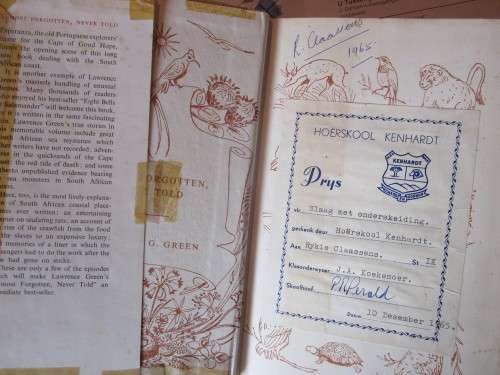 MOST FORGOTTEN, NEVER TOLD
Esperanza, the old Portuguese explorers'
name for the Cape of Good Hope,
the opening scene of this long
book dealing with the South
African coast.
It is another example of Lawrence
masterly handling of unusual
themes. Many thousands of readers
enjoyed his best-seller "Eight Bells
Salamander" will welcome this book,
it is written in the same fascinating
Lawrence Green's true stories in
his memorable volume include great
African sea mysteries which
other writers have not recorded; adven-
in the quicksands of the Cape
the red tide of death; and some
hitherto unpublished evidence bearing
sea monsters in South African
Here, too, is the most lively explana-
of South African coastal place-
ever written; an entertaining
chapter on undaring rats; an account of
rise of the crawfish from the food
the slaves to an expensive luxury;
memories of a liner in which the
passengers had to do the work after the
had gone on strike.
These are only a few of the episodes
which will make Lawrence Green's
"Almost Forgotten, Never Told" an
immediate best-seller.
FORGOTTEN,
TOLD
G. GREEN
R. Claassens
1965
HOËRSKOOL KENHARDT
KENHARDT
Prys
vir Slaag met onderskeiding.
geskenk deur Hoërskool Kenhardt.
Aan Rykie Claassens. St IX
Klasonderwyser J.A. Koekemoer.
Skoolhoof
Datum 10 Desember 1965.